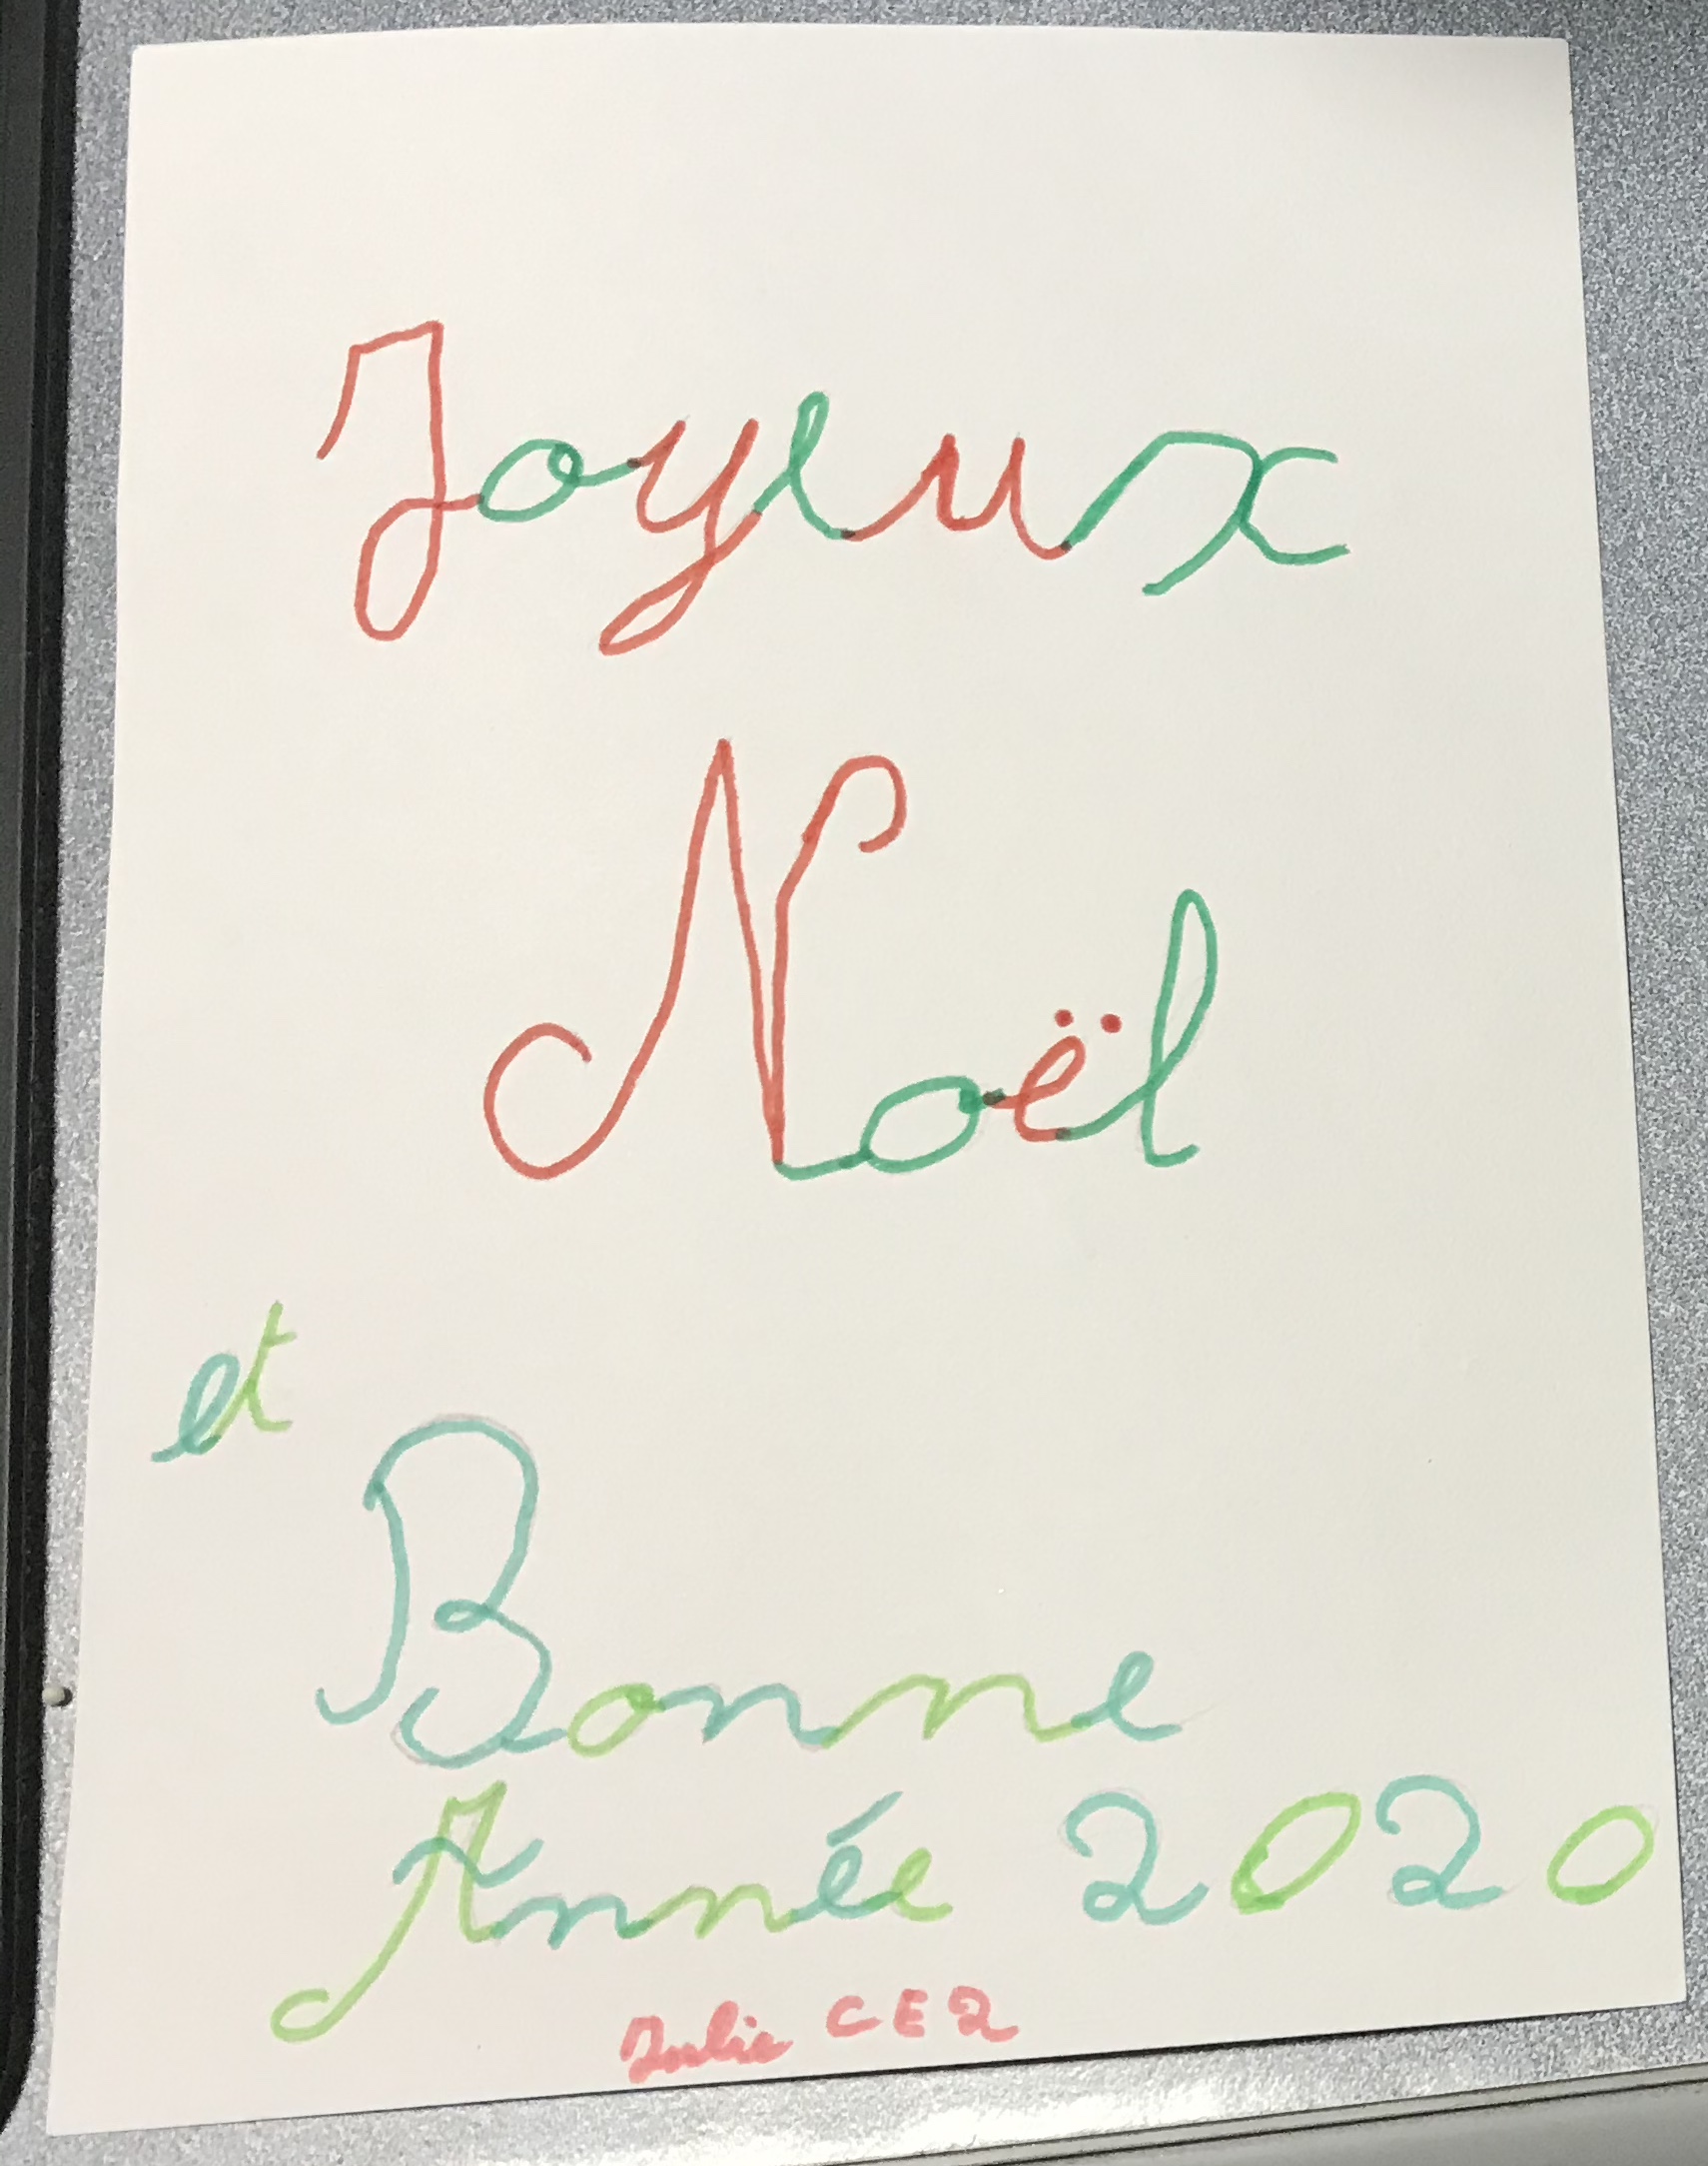 Joyeux
Noël
et
Bonne
Année 2020
Julie CE2